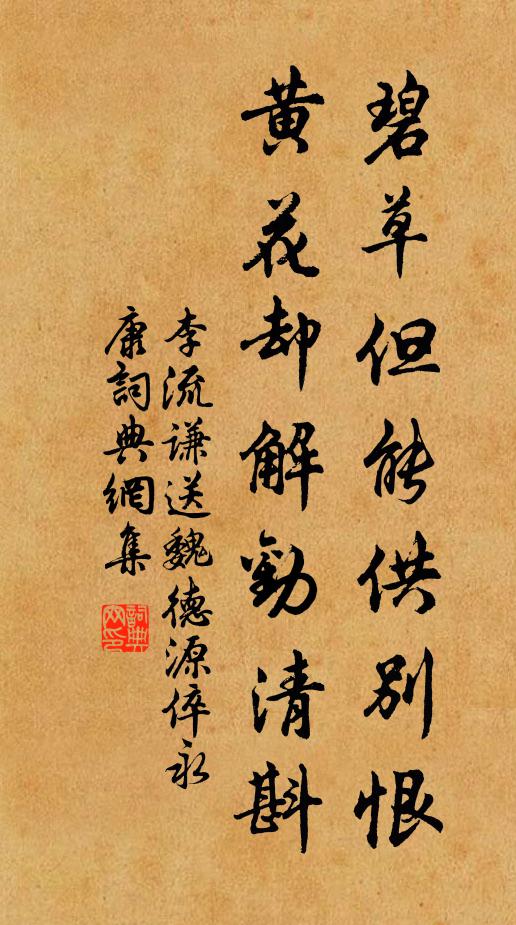 碧草但能供別恨
黄花却解勸清斟
李流謙送魏德源倅永
康詞典網集
詞典网印